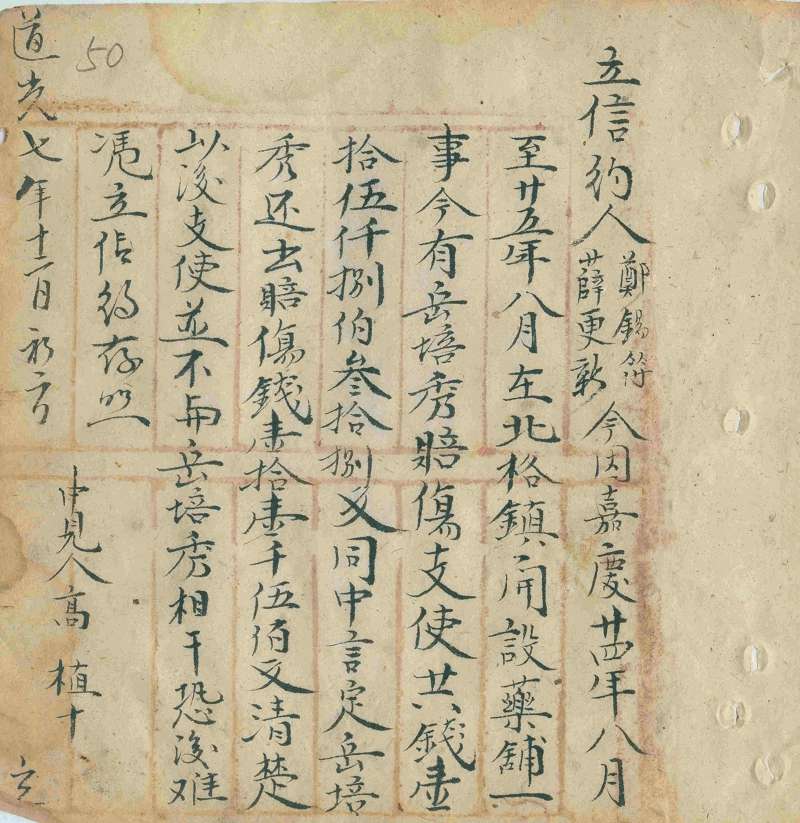 立信約人鄭錫符薛更新今因嘉慶廿四年八月
至廿五年八月在北格鎮開設藥舖一
事今有岳培秀賠傷支使共錢壹
拾伍仟捌伯叁拾捌文同中言定岳培
秀还出賠傷錢壹拾壹千伍佰文清楚
以後支使並不與岳培秀相干恐後难
憑立信約存照
中見人高植十
道光七年十二月初六日 立
50